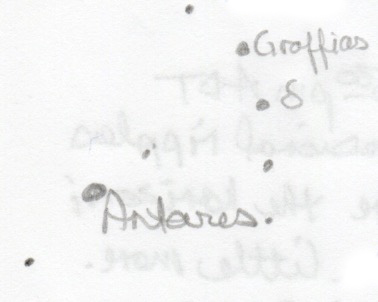 Graffias
δ
Antares